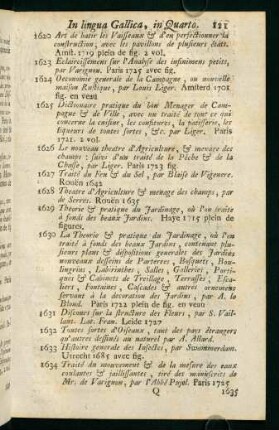 In lingua Gallica, in Quarto. 121
1620 Art de batir les Vaisseaux & d'en perfectionner la
construction, avec les pavillons de plusieurs états.
Amst. 1719 plein de fig. 2 vol.
1623 Eclaircissemens sur l'Analyse des infiniment petits,
par Varignon. Paris 1725 avec fig.
1624 Oeconomie generale de la Campagne, ou nouvelle
maison Rustique, par Louis Liger. Amsterd 1701
fig. en veau
1625 Dictionaire pratique du bon Menager de Campa-
gne & de Ville, avec un traité de tout ce qui
concerne la cuisine, les confitures, la patisserie, les
liqueurs de toutes sortes, &c. par Liger. Paris
1721. 2 vol.
1626 Le nouveau theatre d'Agriculture, & menage des
champs; suivi d'un traité de la Pêche & de la
Chasse, par Liger. Paris 1713 fig.
1627 Traité du Feu & du Sel, par Blaise de Vigenere.
Rouën 1642
1628 Theatre d'Agriculture & menage des champs, par
de Serres. Rouën 1635
1629 Théorie & pratique du Jardinage, où l'on traite
à fonds des beaux Jardins. Haye 1715 plein de
figures.
1630 La Theorie & pratique du Jardinage, où l'on
traité à fonds des beaux Jardins, contenant plu-
siens plans & dispositions generales des Jardins
nouveaux desseins de Parterres, Bosquets, Bou-
lingrins, Labirinthes, Salles, Galleries, Porti-
ques & Cabinets de Treillage, Terrasses, Esca-
liers, Fontaines, Cascades & autres ornemens
servans à la décoration des Jardins, par A. la
Blond. Paris 1722 plein de fig. en veau
1631 Discours sur la structure des Fleurs, par S. Vail-
lant. Lat. Fran. Leide 1727
1632 Toutes sortes d'Oiseaux, tant des pays étrangers
qu'autres dessinés au naturel par A. Allard.
1633 Histoire generale des Insectes, par Swammerdam.
Utrecht 1685 avec fig.
1634 Traité du mouvement & de la mesure des eaux
coulantes & jaillissantes, tiré des manuscrits de
Mr. de Varignon, par l'Abbé Pujol. Paris 1725
Q 1635